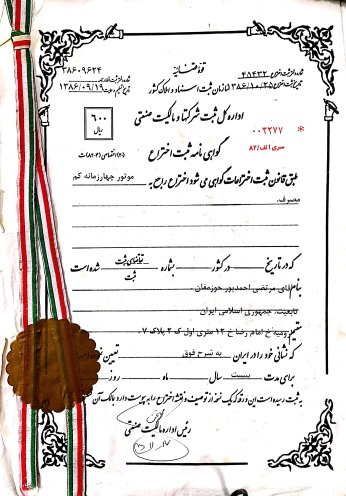 قوه قضائیه
شماره ثبت اختراع ۴۵۴۳۲
تاریخ ثبت اختراع ۱۳۸۶/۱۰/۲۵
سازمان ثبت اسناد و املاک کشور
۳۸۶۰۹۶۲۴
۱۳۸۶/۰۹/۱۹
اداره کل ثبت شرکتها و مالکیت صنعتی
۶۰۰
ریال
۰۰۳۲۷۷ *
سری الف/۸۲
گواهی نامه ثبت اختراع
طبق قانون ثبت اختراعات گواهی می شود اختراع راجع به موتور چهارزمانه کم
مصرف.
که در تاریخ در کشور بشماره تقاضای ثبت شده است
ثبت
بنام آقای مرتضی احمدپور خوزمغان
تابعیت. جمهوری اسلامی ایران
مقیم ارومیه خ امام رضا خ ۱۲ متری اول ک ۲ پلاک ۷.
که نشانی خود را در ایران به شرح فوق تعیین نموده
برای مدت بیست سال ماه روز
به ثبت رسیده است این ورقه که یک نسخه از توصیف و نقشه اختراع را به پیوست دارد مالک آن
رئیس اداره مالکیت صنعتی